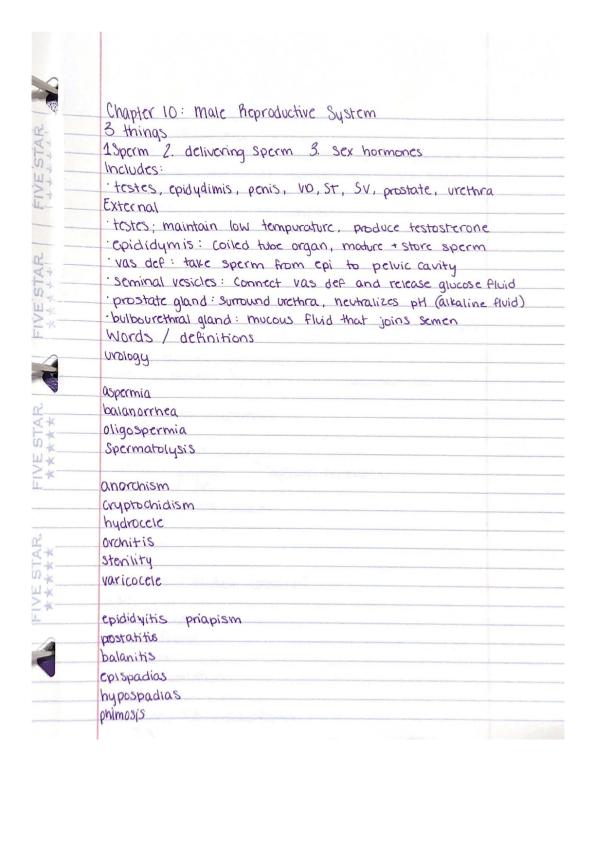 Chapter 10: Male Reproductive System
3 things
1 Sperm 2. delivering sperm 3. sex hormones
Includes:
· testes, epidydimis, penis, VD, ST, SV, prostate, urethra
External
· testes; maintain low tempurature, produce testosterone
· epididymis: coiled tube organ, mature + store sperm
· vas def: take sperm from epi to pelvic cavity
· seminal vesicles: Connect vas def and release glucose fluid
· prostate gland: surround urethra, neutralizes pH (alkaline fluid)
· bulbourethral gland: mucous fluid that joins semen
Words / definitions
urology
aspermia
balanorrhea
oligospermia
Spermatolysis
anorchism
cryptochidism
hydrocele
orchitis
sterility
varicocele
epididyitis priapism
postatitis
balanitis
epispadias
hypospadias
phimosis
FIVE STAR.
FIVE STAR.
FIVE STAR.
FIVE STAR.